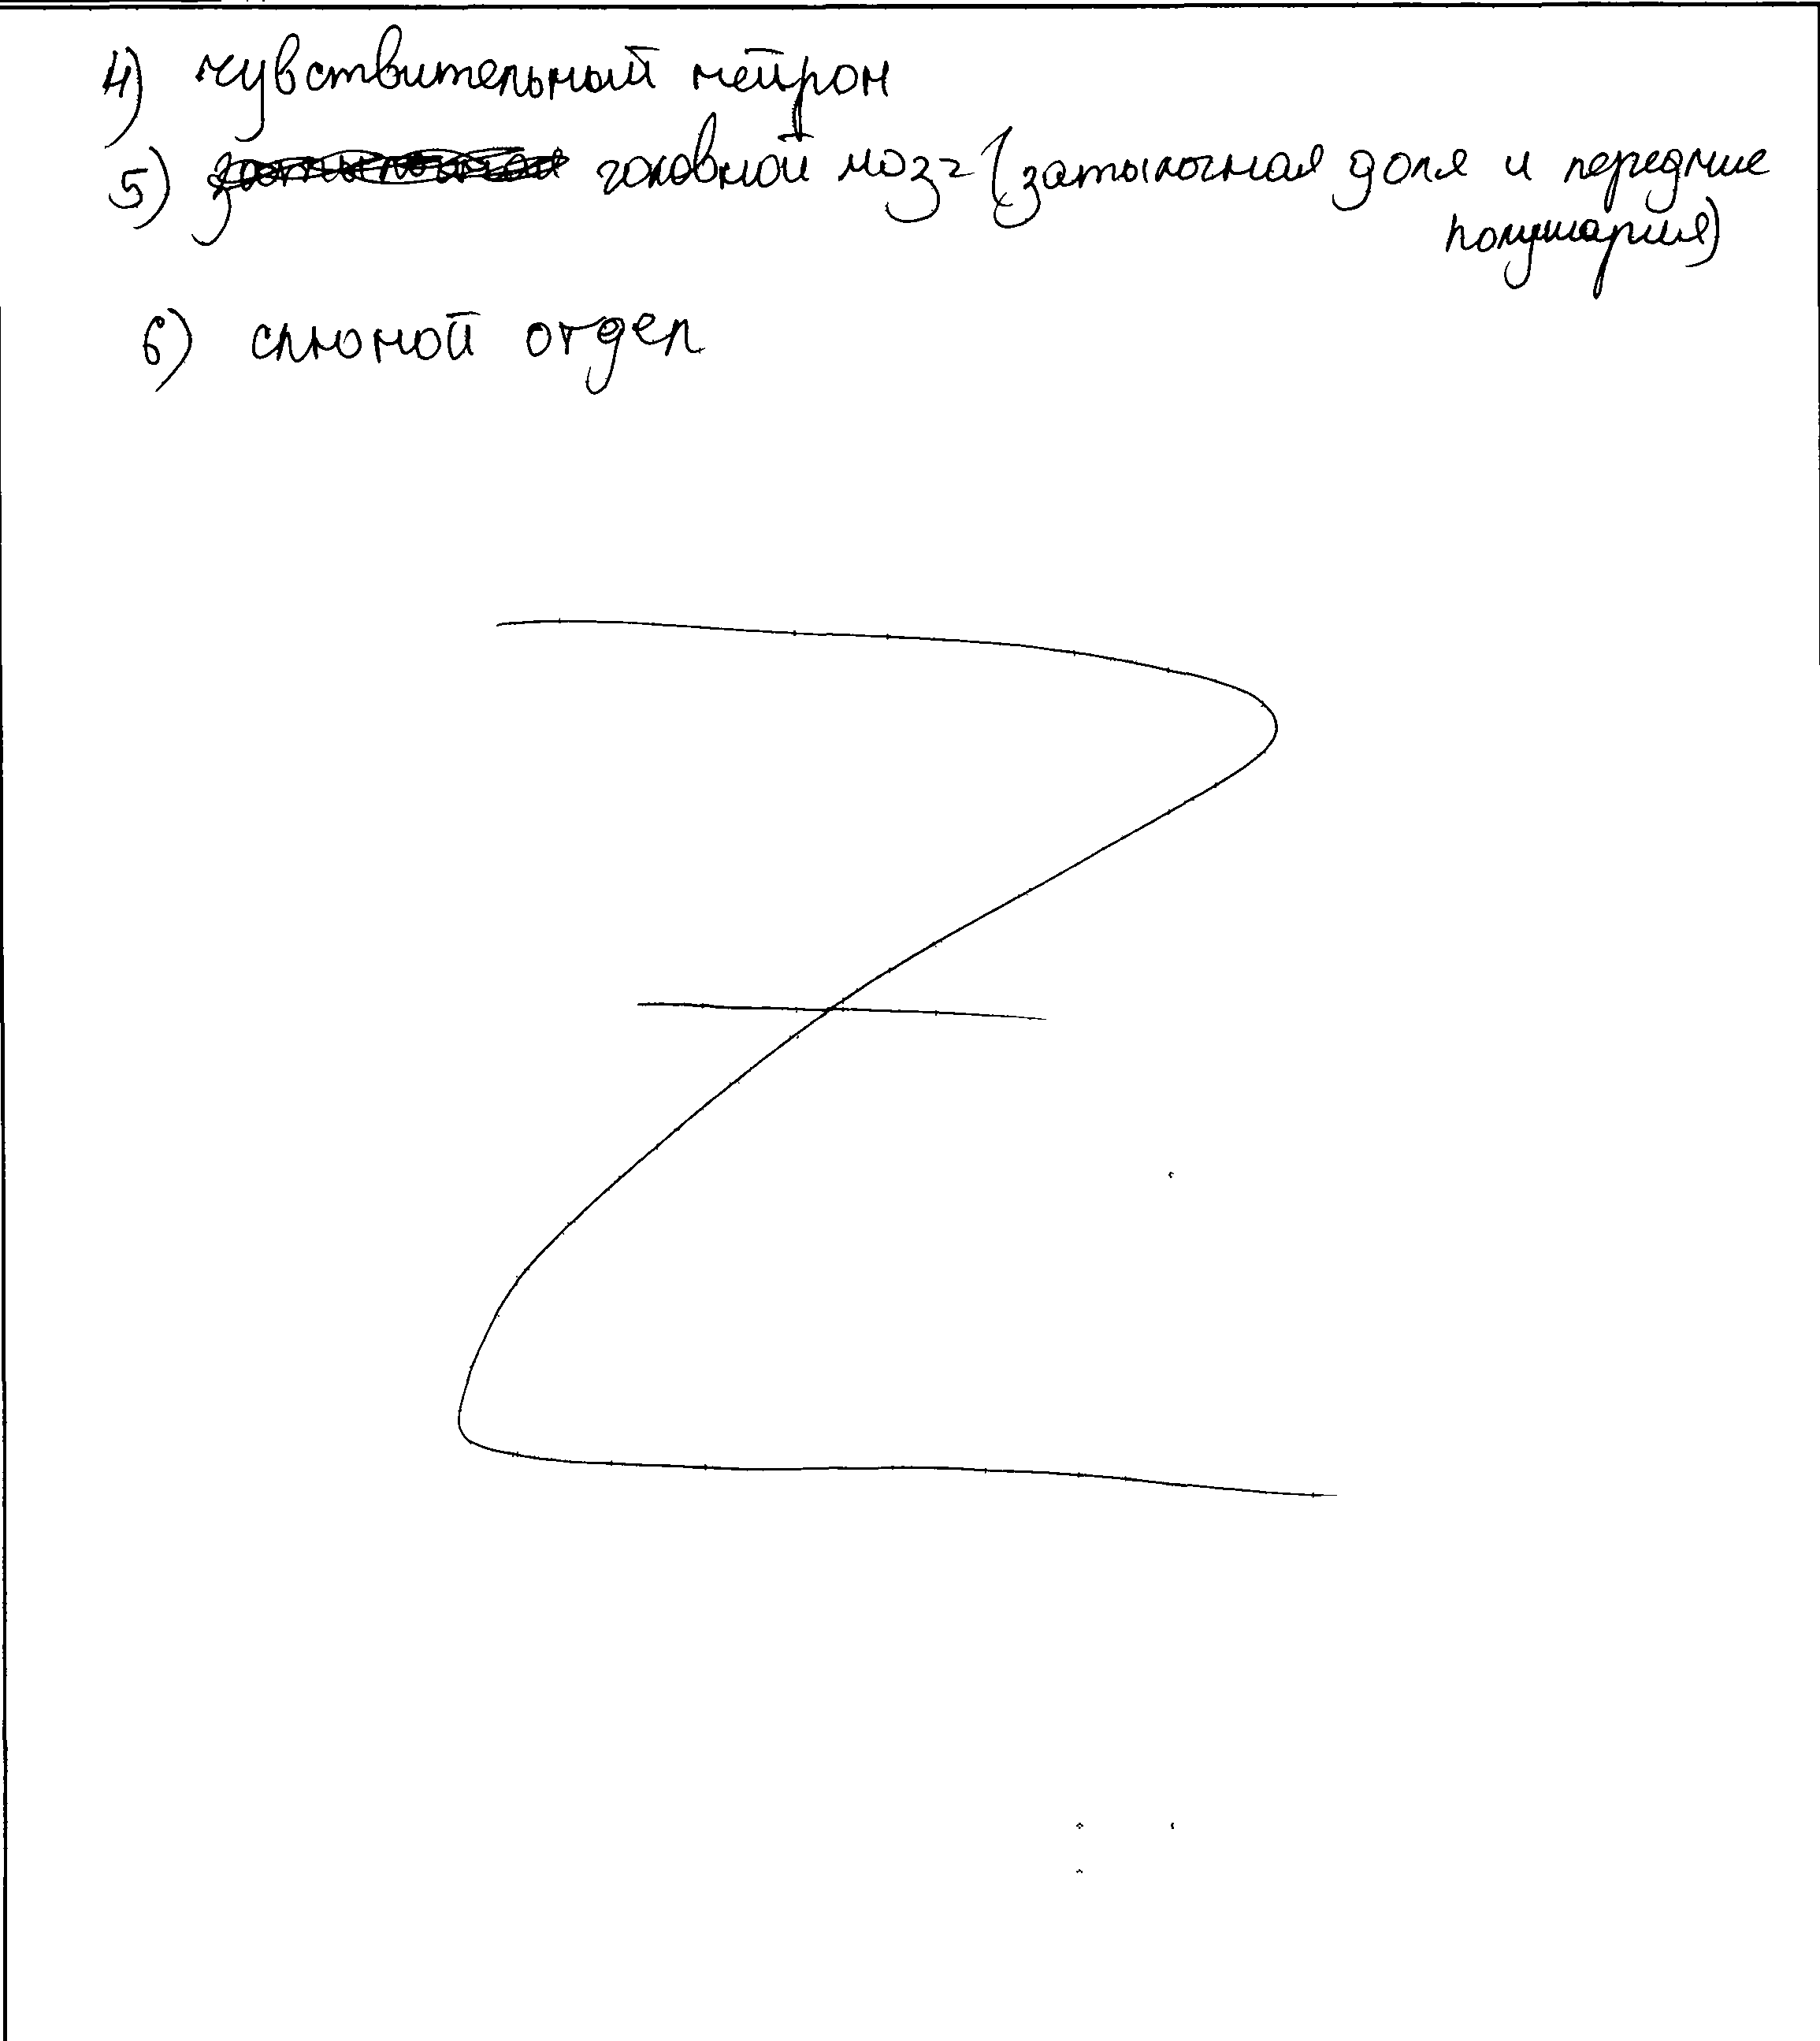 4) чувствительный нейрон
5) головной мозг (затылочная доля и передние
полушария)
6) слюной отдел